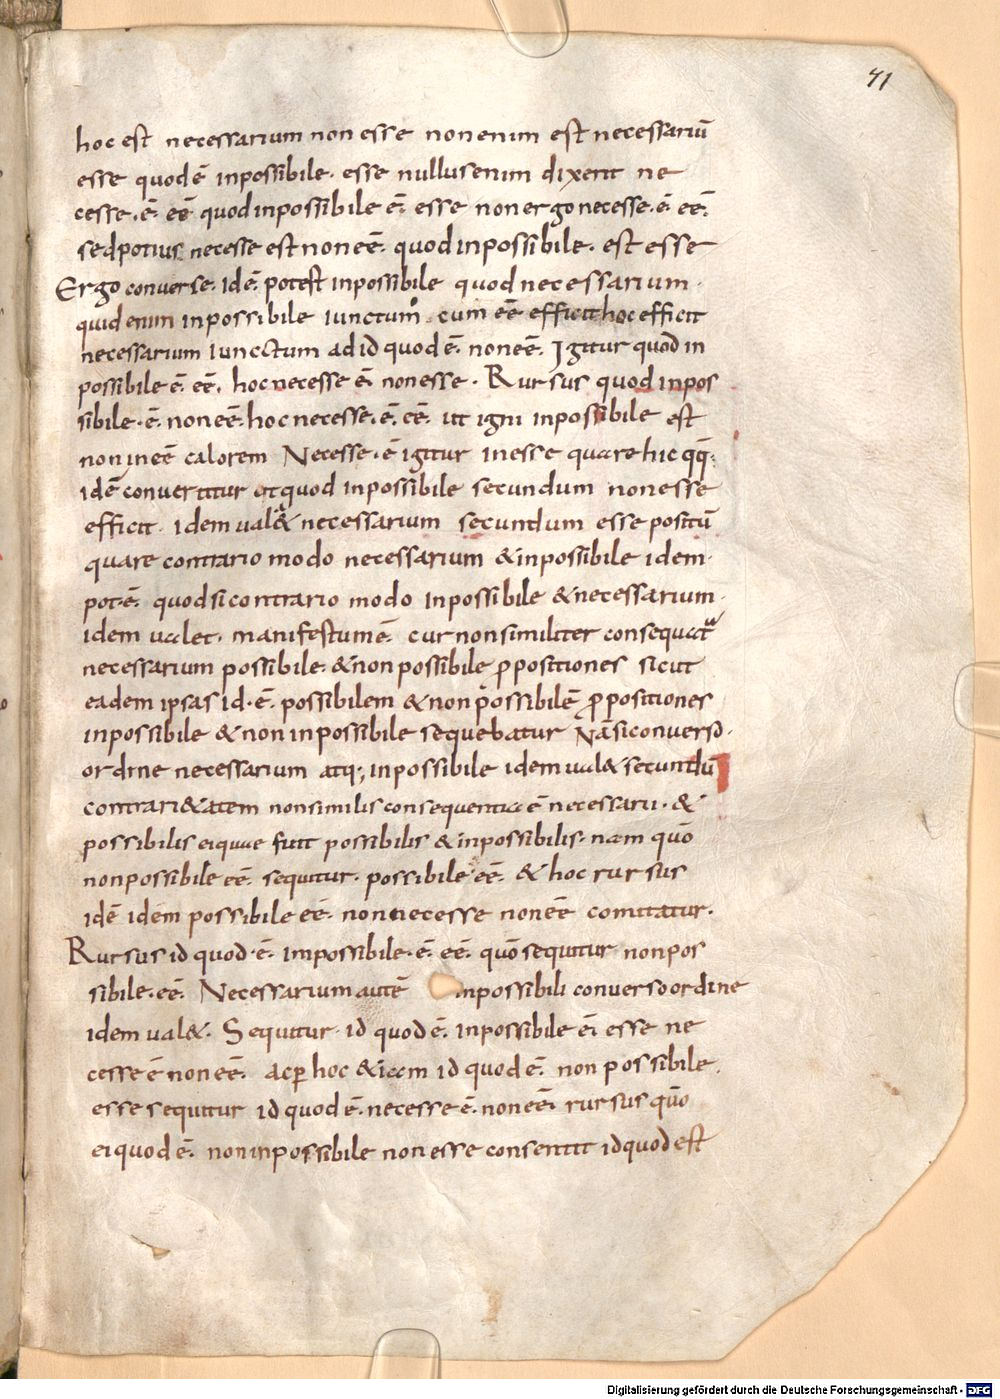 71
hoc est necessarium non esse non enim est necessariū
esse quod ē inpossibile· esse nullus enim dixerit ne
cesse·ē· eē quod inpossibile ē· esse non ergo necesse·ē· eē·
sed potius necesse est non eē· quod inpossibile· est esse
Ergo converse· idē· potest inpossibile quod necessarium·
quid enim inpossibile iunctum· cum eē efficit hoc efficit
necessarium iunctum ad id quod ē· non eē· Igitur quod in
possibile ē· eē· hoc necesse ē· non esse· Rursus quod inpos
sibile·ē· non eē· hoc necesse·ē· eē· ut igni inpossibile est
non ineē calorem Necesse·ē igitur inesse quare hic qq̄;
idē convertitur at quod inpossibile secundum non esse
efficit· idem ual& necessarium secundum esse positū
quare contrario modo necessarium & inpossibile idem·
pot·ē· quod si contrario modo inpossibile & necessarium·
idem ualet· manifestum ē· cur non similiter consequat̄
necessarium possibile· & non possibile ꝓpositiones sicut
eadem ipsas id·ē· possibilem & non possibilē ꝓpositiones
inpossibile & non inpossibile sequebatur Nā si converso·
ordine necessarium atq; inpossibile idem ual& secundū
contrari&atem non similis consequentia ē necessarii· &
possibilis eiquae fuit possibilis & inpossibilis· nam quō
non possibile eē· sequitur· possibile eē· & hoc rursus
idē idem possibile eē· non necesse non eē comitatur·
Rursus id quod·ē· impossibile·ē· eē· quō sequitur non pos
sibile·eē· Necessarium autē inpossibili converso ordine
idem ual&· Sequitur· id quod ē· inpossibile ē· esse ne
cesse ē non eē· ac ꝑ hoc &iam id quod ē· non possibile·
esse sequitur id quod ē· necesse ē· non eē· rursus quō
ei quod ē· non inpossibile non esse consentit id quod est
Digitalisierung gefördert durch die Deutsche Forschungsgemeinschaft - DFG